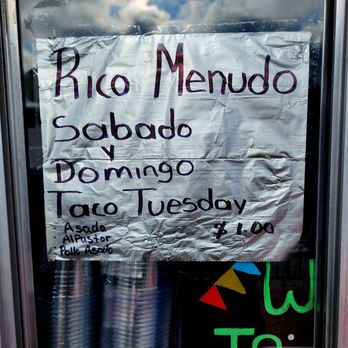 Rico Menudo
Sabado
y
Domingo
Taco Tuesday
Asada $1.00
Al Pastor
Pollo Asado
W
TO